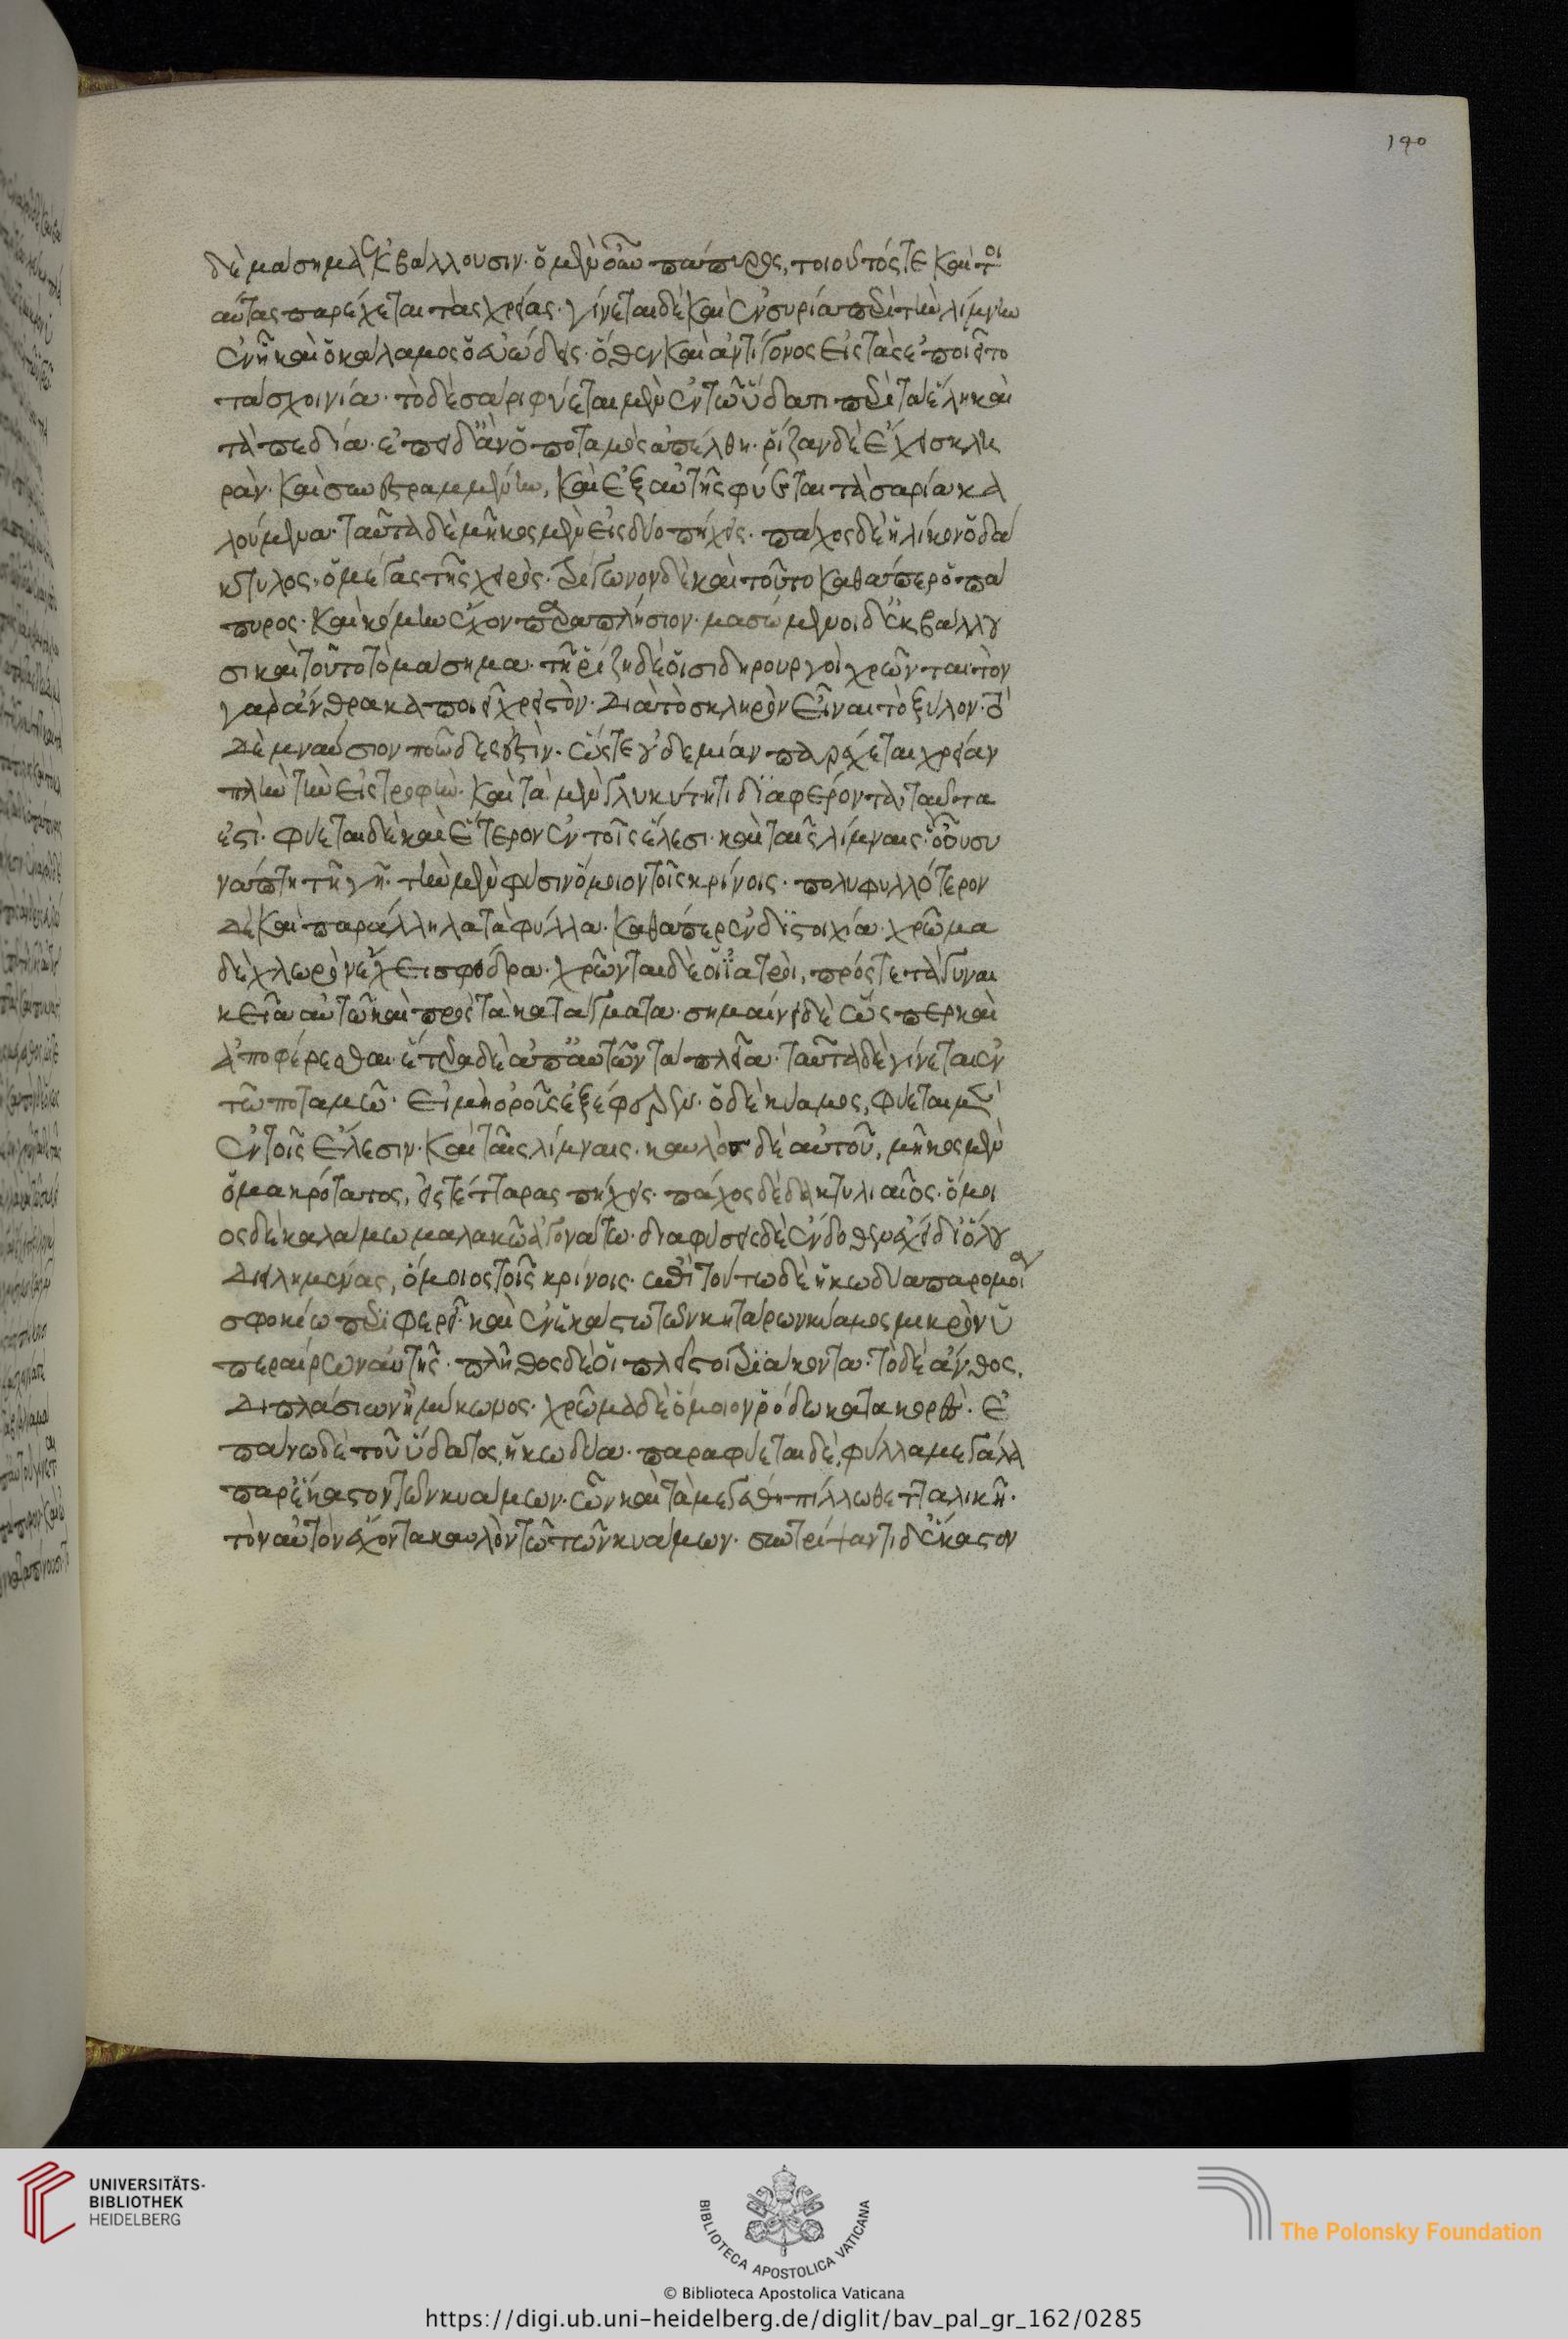 190
δὲ μάσημα ἐκβάλλουσιν. ὁ μὲν οὖν πάπυρος, τοιοῦτός τε καὶ τοι
αύτας παρέχεται τὰς χρείας. γίνεται δὲ καὶ ἐν συρία περὶ τὴν λίμνην
ἐν ἧ καὶ ὁ κάλαμος ὁ εὐώδης. ὅθεν καὶ ἀντίγονος εἰς τὰς ἐποιεῖτο
τὰ σχοινία. τὸ δὲ σάρι φύεται μὲν ἐν τῶ ὕδατι περὶ τὰ ἕλη καὶ
τὰ πεδία. ἐπειδὰν ὁ ποταμὸς ἀπέλθη. ῥίζαν δὲ ἔχει σκλη
ρὰν. καὶ συνεστραμμένην, καὶ ἐξ αὐτῆς φύεται τὰ σαρία κα
λούμενα. ταῦτα δὲ μῆκος μὲν εἰς δύο πήχεις. πάχος δὲ ἡλίκον ὁ δά
κτυλος. ὁ μέγας τῆς χειρὸς. τρίγωνον δὲ καὶ τοῦτο καθάπερ ὁ πά
πυρος. καὶ κόμην ἔχον παραπλήσιον. μασώμενοι δ' ἐκβάλλου
σι καὶ τοῦτο τὸ μάσημα. τῆ ῥίζη δὲ οἱ σιδηρουργοὶ χρῶνται. τὸν
γὰρ ἄνθρακα ποιεῖ χρηστὸν. διὰ τὸ σκληρὸν εἶναι τὸ ξύλον. τὸ
δὲ μναύσιον ποῶδές ἐστὶν. ὥστε οὐδεμίαν παρέχεται χρείαν
πλὴν τὴν εἰς τροφὴν. καὶ τὰ μὲν γλυκύτητι διαφέροντα, ταῦτα
ἐστὶ. φύεται δὲ καὶ ἕτερον ἐν τοῖς ἕλεσι. καὶ ταῖς λίμναις. ὃ οὐ συ
νάπτη τῆ γῆ. τὴν μὲν φύσιν ὅμοιον τοῖς κρίνοις. πολυφυλλότερον
δὲ καὶ παράλληλα τὰ φύλλα. καθάπερ ἐν διστοιχία. χρῶμα
δὲ χλωρὸν ἔχει σφόδρα. χρῶνται δὲ οἱ ἰατροὶ, πρός τε τὰ γυναι
κεῖα αὐτῶ καὶ πρὸς τὰ κατάγματα. σημαίνει δὲ ὥσπερ καὶ
ἀποφέρεσθαι. ἕτερα δὲ ἀπ' αὐτῶν τὰ πλεῖα. ταῦτα δὲ γίνεται ἐν
τῶ ποταμῶ. εἰ μὴ ὁ ροῦς ἐξέφερεν. ὁ δὲ κύαμος, φύεται μὲν
ἐν τοῖς ἕλεσιν. καὶ ταῖς λίμναις. καυλὸς δὲ αὐτοῦ, μῆκος μὲν
ὁ μακρότατος, εἰς τέτταρας πήχεις. πάχος δὲ δακτυλιαῖος. ὅμοι
ος δὲ καλάμω μαλακῶ ἀγονάτω. διαφύσεις δὲ ἔνδοθεν ἔχει δι' ὅλου
διειλημένας, ὅμοιος τοῖς κρίνοις. ἐπὶ τούτω δὲ ἡ κωδύα παρομοία
σφηκίω περιφερεῖ. καὶ ἐν ἑκάστω τῶν κητάρων κύαμος μικρὸν ὑ
περαίρων αὐτῆς. πλῆθος δὲ οἱ πλεῖστοι τριάκοντα. τὸ δὲ ἄνθος,
διπλάσιον ἢ μήκωνος. χρῶμα δὲ ὅμοιον ῥόδω κατακορὲς. ἐ
πάνω δὲ τοῦ ὕδατος, ἡ κωδύα. παραφύεται δὲ, φύλλα μεγάλα
παρ' ἕκαστον τῶν κυάμων. ὧν καὶ τὰ μεγέθη πίλλω θετταλικῆ.
τὸν αὐτὸν ἔχοντα καυλὸν τῶ τῶν κυάμων. συντρίψαντι δ' ἕκαστον
UNIVERSITÄTS-
BIBLIOTHEK
HEIDELBERG
BIBLIOTECA APOSTOLICA VATICANA
The Polonsky Foundation
© Biblioteca Apostolica Vaticana
https://digi.ub.uni-heidelberg.de/diglit/bav_pal_gr_162/0285